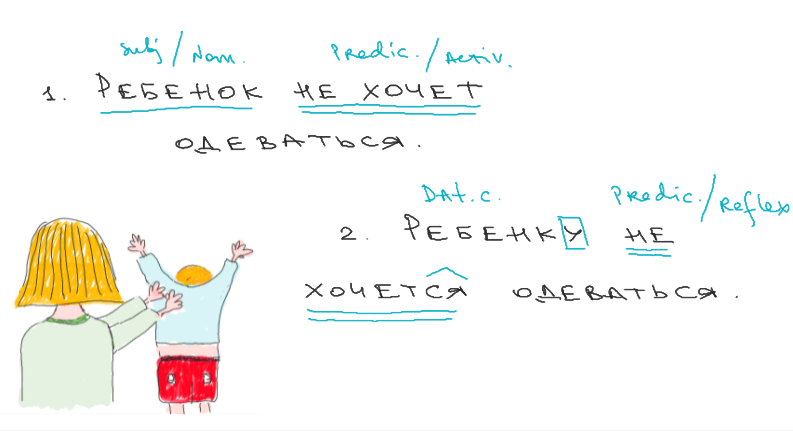 Subj/Nom. Predic./Activ.
1. РЕБЕНОК НЕ ХОЧЕТ
ОДЕВАТЬСЯ.
Dat.c. Predic./Reflex
2. РЕБЕНКУ НЕ
ХОЧЕТСЯ ОДЕВАТЬСЯ.